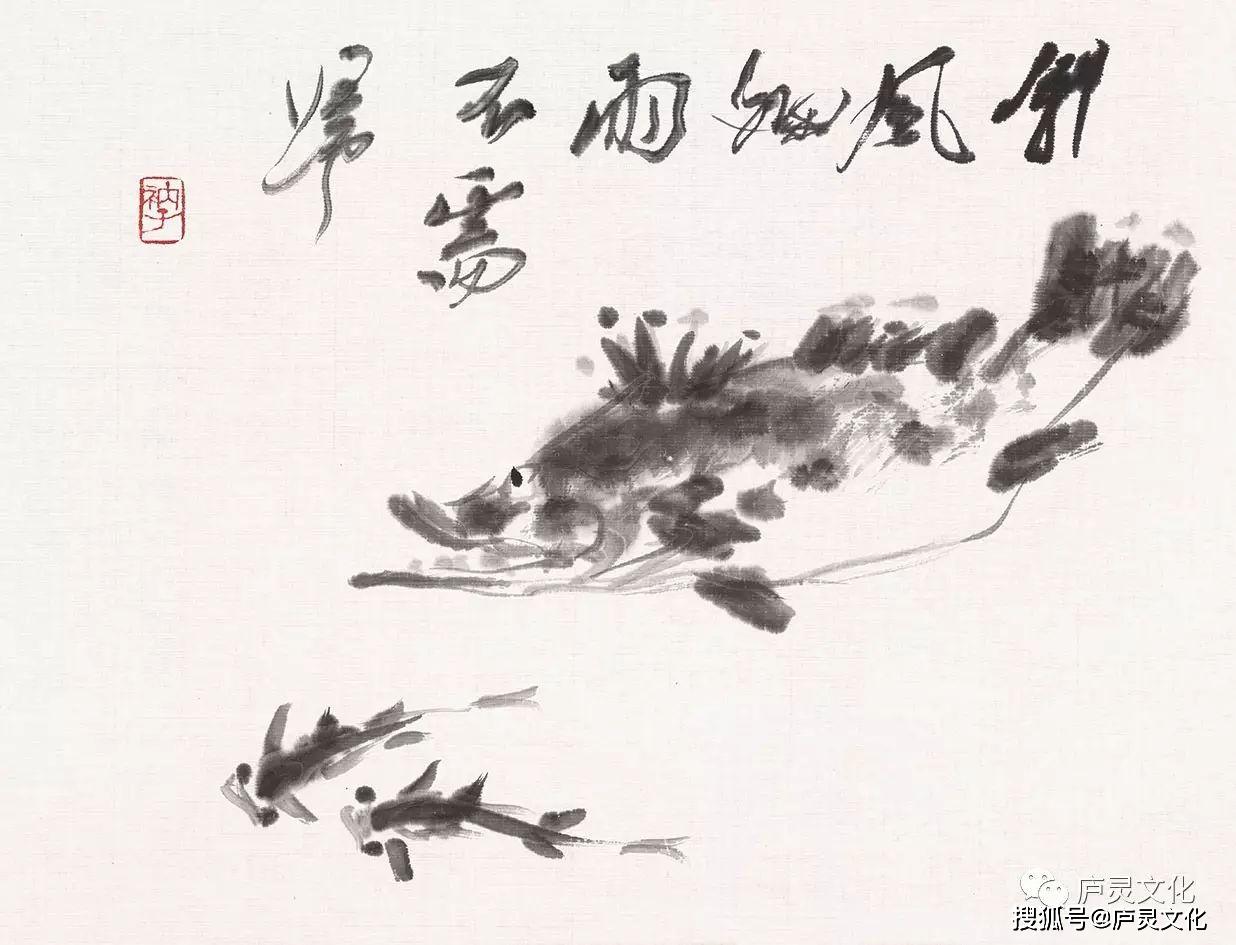 斜風細雨不需歸
衲子
庐灵文化
搜狐号@庐灵文化